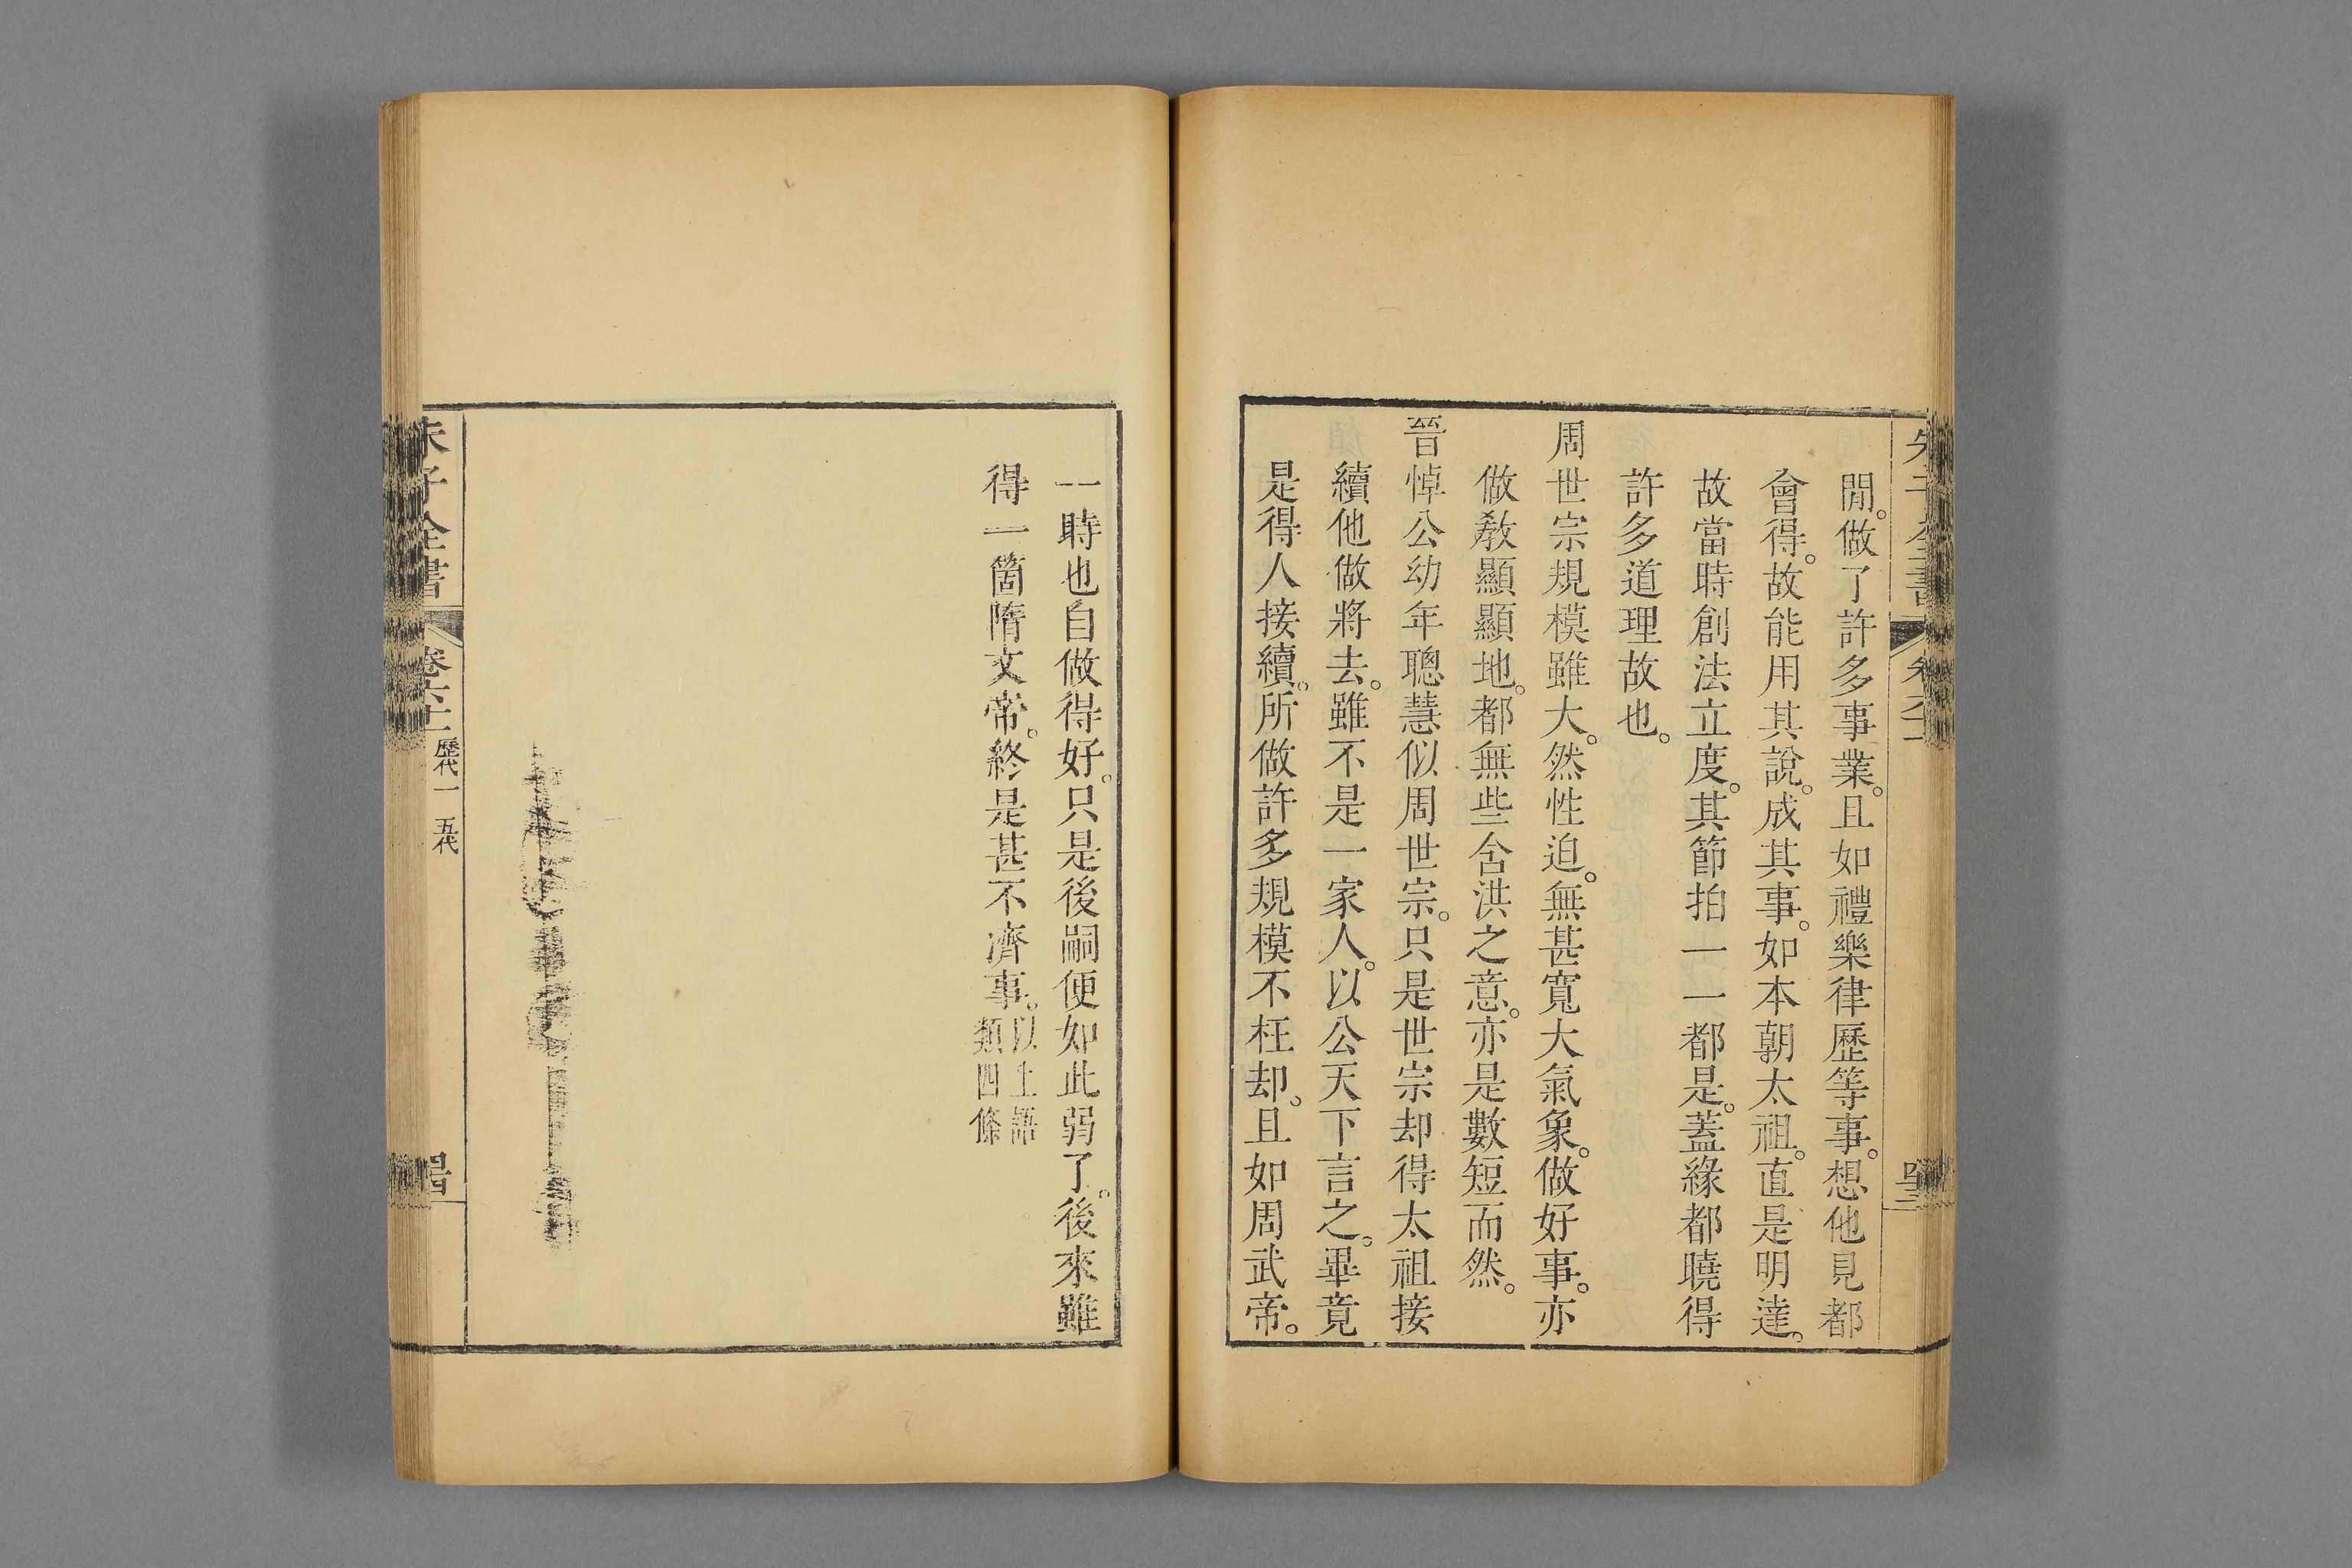 閒。做了許多事業。且如禮樂律歷等事。想他見都
會得。故能用其說。成其事。如本朝太祖。直是明達。
故當時創法立度。其節拍一一都是。蓋緣都曉得
許多道理故也。
周世宗規模雖大。然性迫。無甚寬大氣象。做好事。亦
做敎顯顯地。都無些含洪之意。亦是數短而然。
晉悼公幼年聰慧似周世宗。只是世宗却得太祖接
續他做將去。雖不是一家人。以公天下言之。畢竟
是得人接續。所做許多規模不枉却。且如周武帝。
一時也自做得好。只是後嗣便如此弱了。後來雖
得一箇隋文帝。終是甚不濟事。以上語
類四條
朱子全書
卷六十二
歷代一 五代